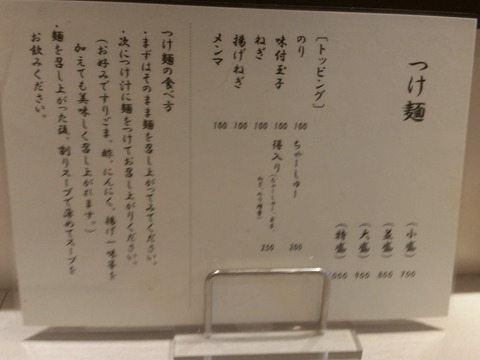 つけ麺
(小盛) 700
(並盛) 800
(大盛) 900
(特盛) 1000
[トッピング]
のり 100
味付玉子 100
ねぎ 100
揚げねぎ 100
メンマ 100
ちゃーしゅー 200
得入り 250
つけ麺の食べ方
・まずはそのまま麺を召し上がってみてください。
・次につけ汁に麺をつけてお召し上がりください。
(お好みですりごま、酢、にんにく、揚げ一味等を
加えても美味しく召し上がれます。)
・麺を召し上がった後、割りスープで薄めてスープを
お飲みください。